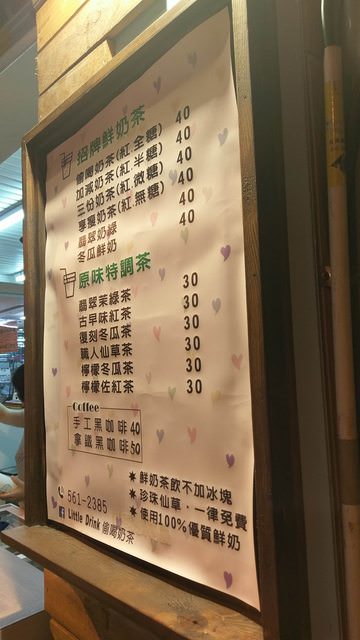 招牌鮮奶茶
偷喝奶茶(紅.全糖) 40
加減奶茶(紅.半糖) 40
三份奶茶(紅.微糖) 40
享瘦奶茶(紅.無糖) 40
翡翠奶綠 40
冬瓜鮮奶 40
原味特調茶
翡翠茉綠茶 30
古早味紅茶 30
復刻冬瓜茶 30
職人仙草茶 30
檸檬冬瓜茶 30
檸檬佐紅茶 30
Coffee
手工黑咖啡40
拿鐵黑咖啡50
561-2385
Little Drink 偷喝奶茶
＊鮮奶茶飲不加冰塊
＊珍珠仙草．一律免費
＊使用100%優質鮮奶